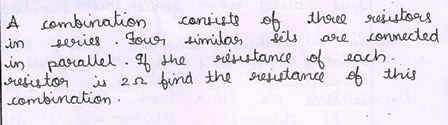 A combination consists of three resistors
in series. Four similar sets are connected
in parallel. If the resistance of each
resistor is 2Ω find the resistance of this
combination.